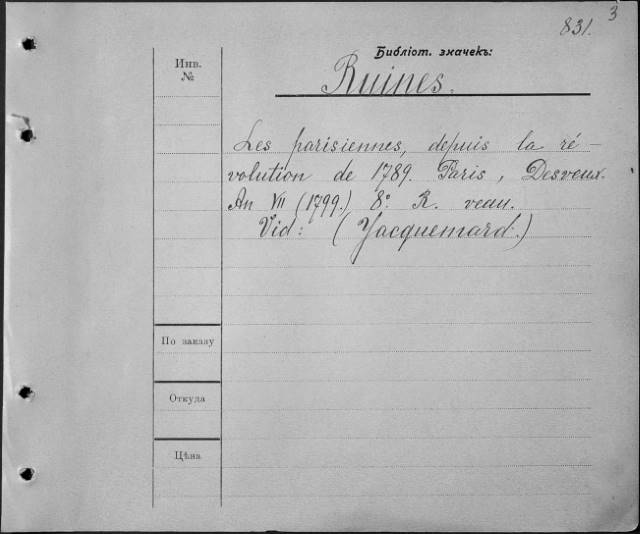 3
831.
Инв.
№
Библіот. значекъ:
Ruines.
Les parisiennes, depuis la ré-
volution de 1789. Paris, Desveux.
An VII (1799.) 8º. R. veau.
Vid: (Jacquemard.)
По заказу
Откуда
Цѣна